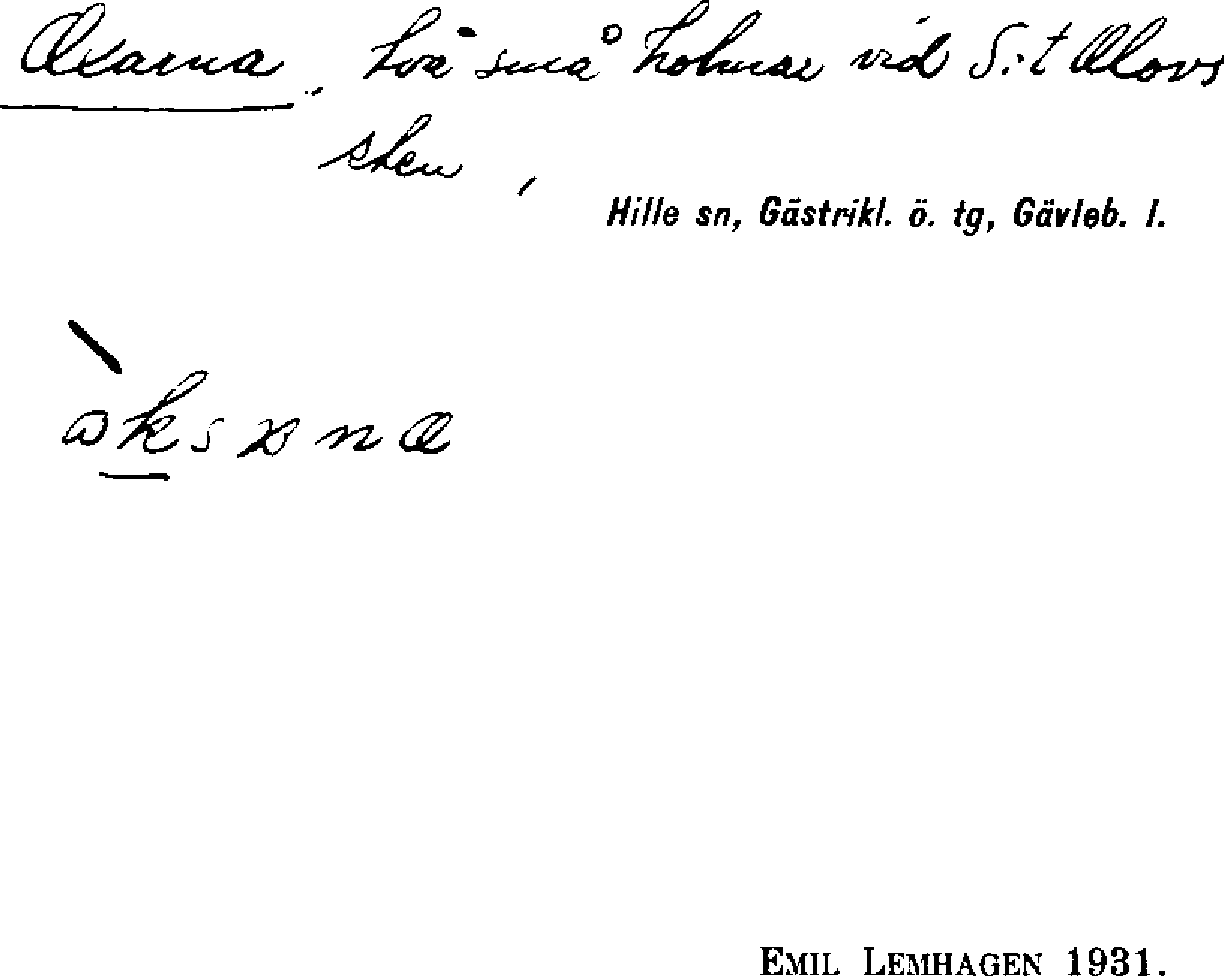 Oxarna, två små holmar vid S:t Olovs
sten,
Hille sn, Gästrikl. ö. tg, Gävleb. l.
EMIL LEMHAGEN 1931.